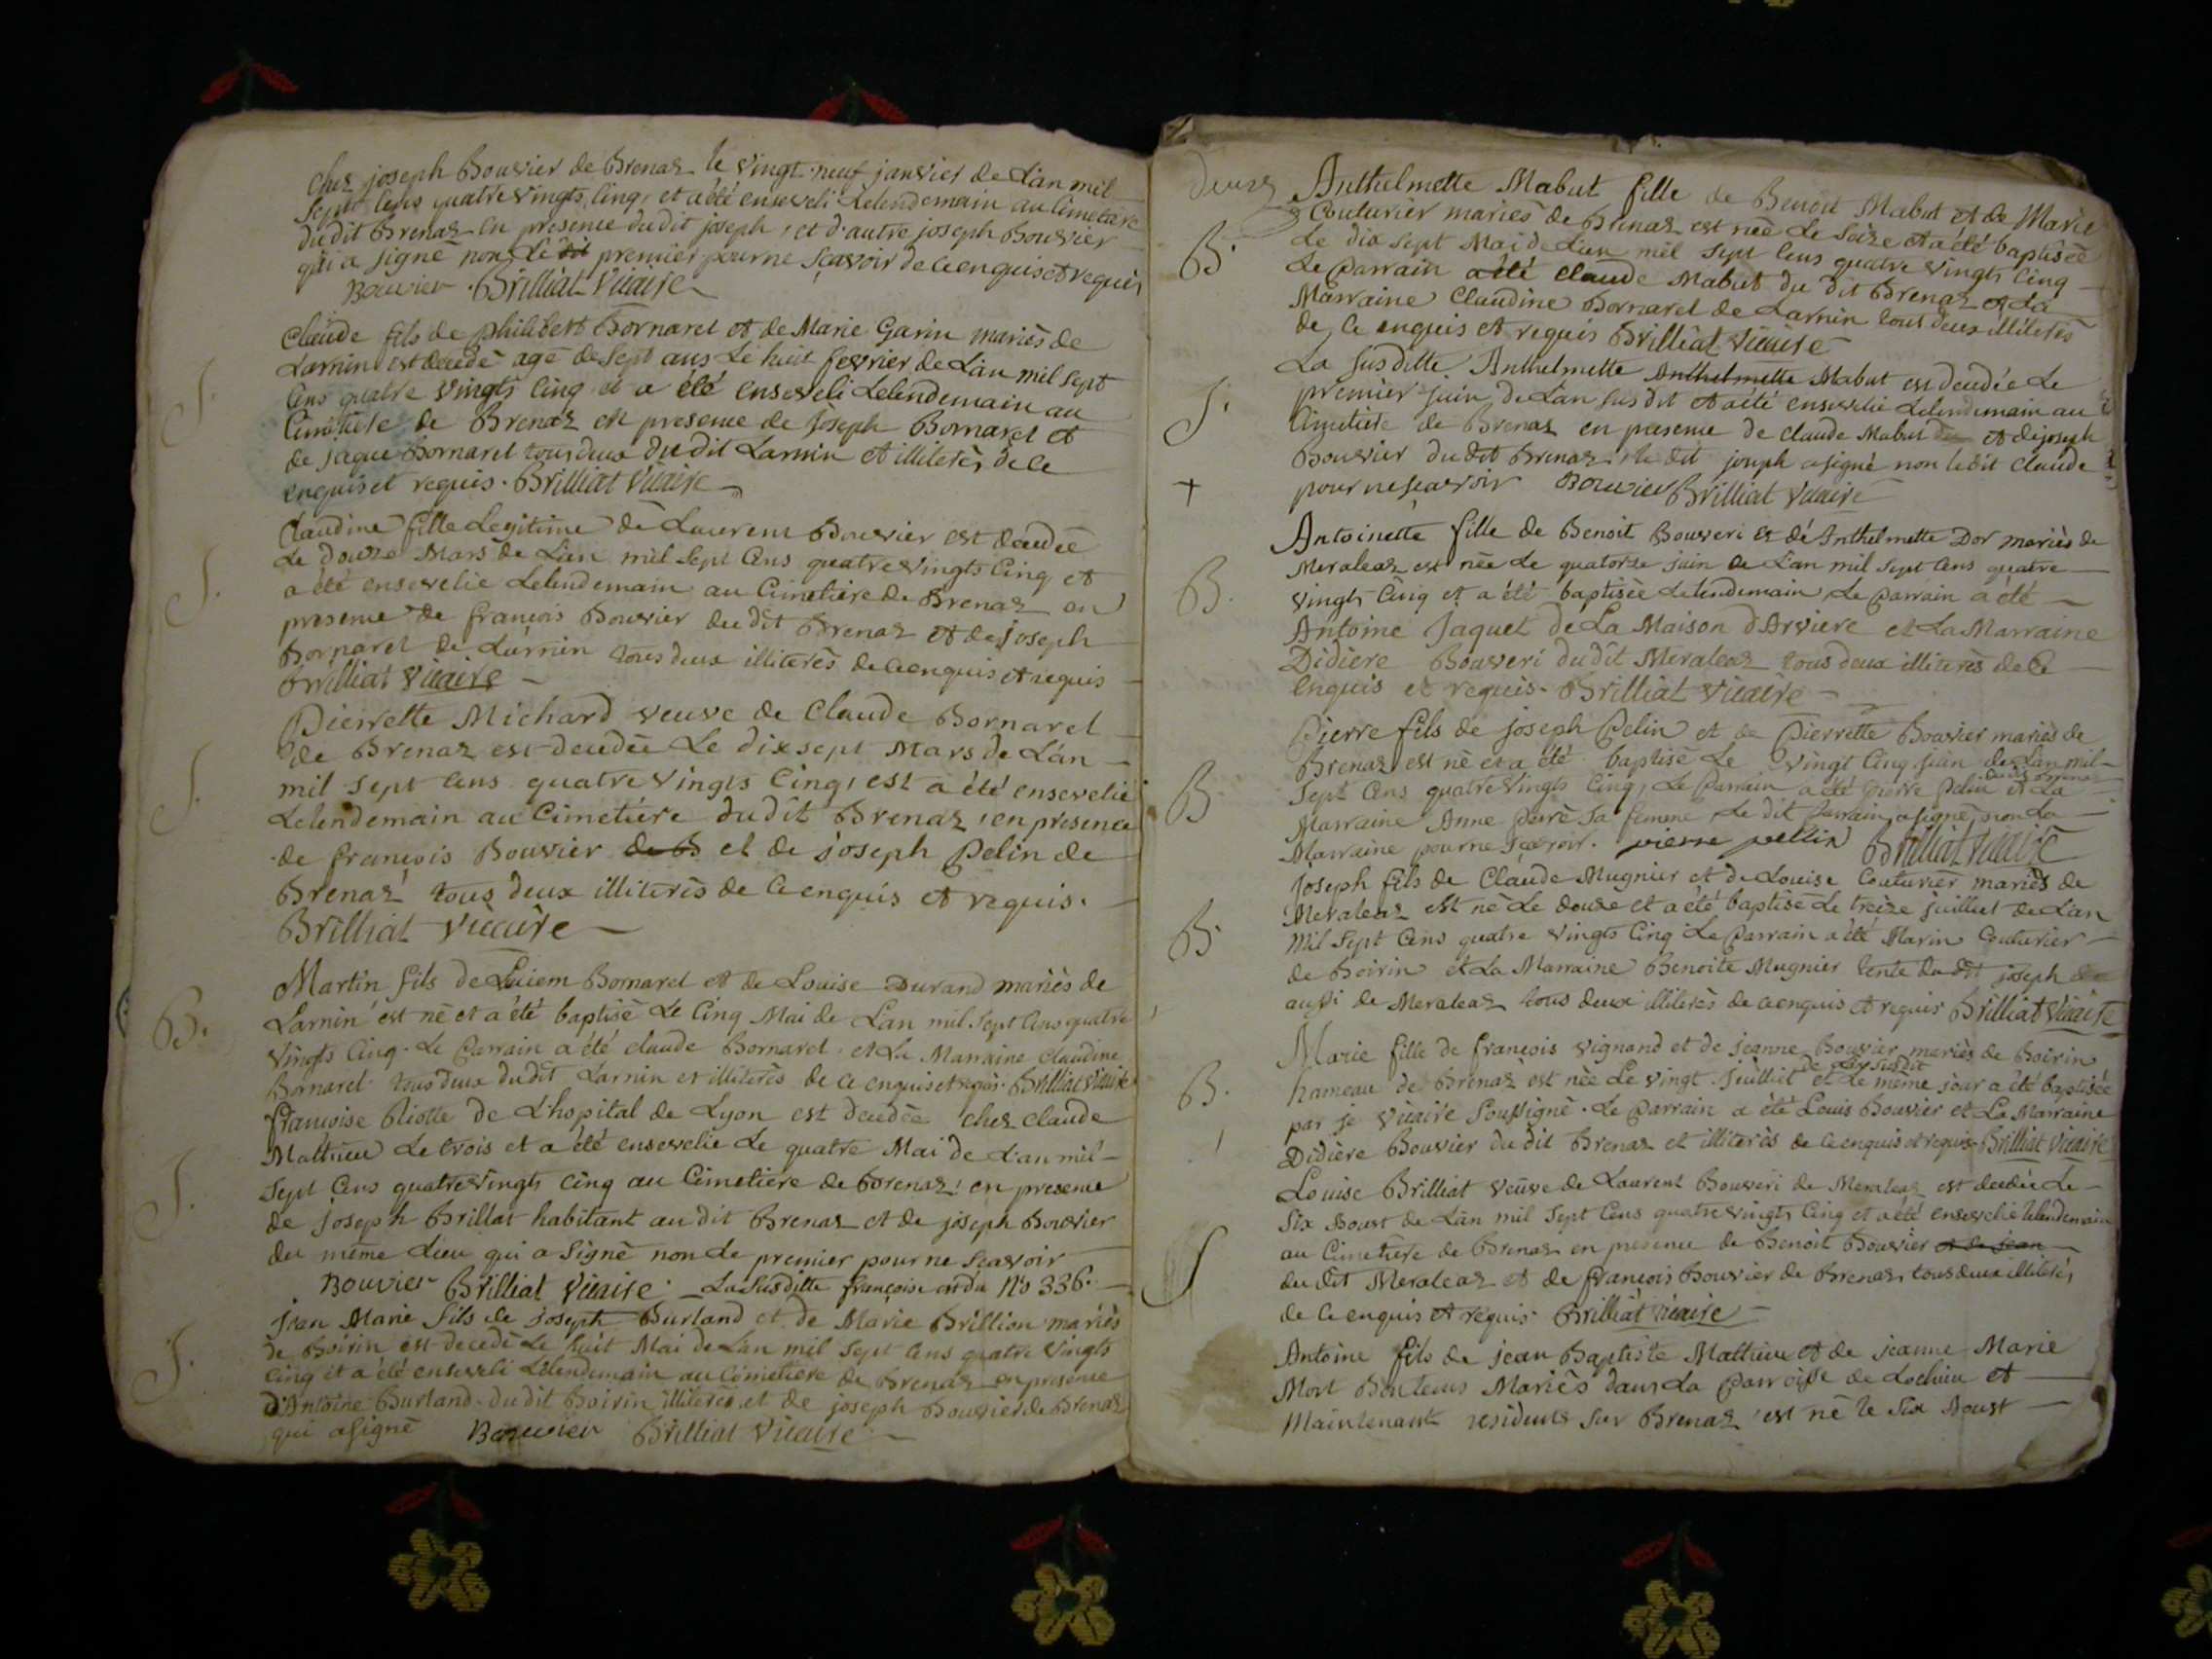 chez joseph Bouvier de Brenaz le vingt-neuf janvier de L'an mil
Sept Cens quatre vingts Cinq, et a été enseveli Lelendemain au Cimetiere
du dit Brenaz en presence du dit joseph, et d'autre joseph Bouvier
qui a signé non Le dit premier pour ne Scavoir de ce enquis et requis
Bouvier. Brilliat Vicaire
S.
Claude fils de philibert Bornarel et de Marie Garin mariés de
Larnin est decedé agé de Sept ans Le huit fevrier de L'an mil sept
Cens quatre vingts Cinq et a été enseveli Lelendemain au
Cimetiere de Brenaz en presence de Joseph Bornarel et
de jaque Bornarel tous deux du dit Larnin et illiterés de ce
enquis et requis. Brilliat Vicaire
S.
Claudine fille Legitime de Laurent Bouvier est decedée
Le douze Mars de L'an mil Sept Cens quatre vingts Cinq et
a été ensevelie Lelendemain au Cimetiere de Brenaz en
presence de françois Bouvier du dit Brenaz et de joseph
Bornarel de Larnin tous deux illiterés de ce enquis et requis
Brilliat Vicaire
S.
Pierrette Michard veuve de Claude Bornarel
de Brenaz est decedée Le dix sept Mars de L'an
mil Sept Cens quatre vingts Cinq, est a été ensevelie
Lelendemain au Cimetiere du dit Brenaz, en presence
de françois Bouvier de B et de joseph Pelin de
Brenaz tous deux illiterés de Ce enquis et requis.
Brilliat Vicaire
B.
Martin fils de Bornarel et de Louise Durand mariés de
Larnin est né et a été baptisé Le Cinq Mai de L'an mil Sept Cens quatre
Vingts Cinq. Le Parrain a été claude Bornarel. et La Marraine claudine
Bornarel tous deux du dit Larnin et illiterés de ce enquis et requis. Brilliat Vicaire
S.
françoise de L'hopital de Lyon est decedée chez claude
Mathieu Le trois et a été ensevelie Le quatre Mai de L'an mil
Sept Cens quatre vingts cinq au Cimetiere de Brenaz: en presence
de joseph Brillat habitant au dit Brenaz et de joseph Bouvier
du même Lieu qui a Signé non Le premier pour ne Scavoir
Bouvier Brilliat Vicaire. La Susditte françoise du N° 336.
S.
Jean Marie fils de joseph Burland et de Marie Brillion mariés
de Boirin est decedé Le huit Mai de L'an mil Sept Cens quatre Vingts
Cinq et a été enseveli Lelendemain au Cimetiere de Brenaz en presence
D'Antoine Burland du dit Boirin illiterés et de joseph Bouvier de Brenaz
qui a signé Bouvier Brilliat Vicaire
deuze
Anthelmette Mabut fille de Benoit Mabut et de Marie
Couturier mariés de Brenaz est née Le Seize et a été baptisée
B.
Le dix sept Mai de L'an mil Sept Cens quatre vingts Cinq
Le Parrain a été claude Mabut du dit Brenaz et La
Marraine Claudine Bornarel de Larnin tous deux illiterés
de Ce enquis et requis Brilliat Vicaire
S.
La Susditte Anthelmette Anthelmette Mabut est decedée Le
premier juin de L'an Susdit et a été ensevelie Lelendemain au
Cimetiere de Brenaz en presence de claude Mabut et de joseph
Bouvier du dit Brenaz, le dit joseph a signé non ledit claude
+
pour ne Scavoir Bouvier Brilliat Vicaire
Antoinette fille de Benoit Bouveri et de Anthelmette Dor mariés de
Meraleaz est née Le quatorze juin de L'an mil Sept Cens quatre
B.
vingts Cinq et a été baptisée Lelendemain, Le Parrain a été
Antoine Jaquet de La Maison d'Arviere et La Marraine
Didiere Bouveri du dit Meraleaz tous deux illiterés de Ce
enquis et requis. Brilliat Vicaire
Pierre fils de joseph Pelin et de Pierrette Bouvier mariés de
Brenaz est né et a été baptisé Le vingt Cinq juin de L'an mil
B.
Sept Cens quatre Vingts Cinq, Le Parrain a été pierre Pelin et La
Marraine Anne sa femme, Le dit Parrain a signé, non La
Marraine pour ne Scavoir. pierre pellin Brilliat Vicaire
Joseph fils de Claude Mugnier et de Louise Couturier mariés de
Meraleaz est né Le douze et a été baptisé Le treize juillet de L'an
B.
Mil Sept Cens quatre vingts Cinq Le Parrain a été Marin Couturier
de Boirin et La Marraine Benoite Mugnier tente du dit joseph
aussi de Meraleaz tous deux illiterés de ce enquis et requis Brilliat Vicaire
Marie fille de françois vignand et de jeanne Bouvier mariés de Boirin
de L'an susdit
B.
hameau de Brenaz est née Le vingt juilliet et Le même jour a été baptisée
par je Vicaire Soussigné. Le Parrain a été Louis Bouvier et La Marraine
Didiere Bouvier du dit Brenaz et illiterés de ce enquis et requis. Brilliat Vicaire
Louise Brilliat veuve de Laurent Bouveri de Meraleaz est decedée Le
Six Aoust de L'an mil Sept Cens quatre vingts Cinq et a été ensevelie lelendemain
S
au Cimetiere de Brenaz en presence de Benoit Bouvier et de jean
du dit Meraleaz et de françois Bouvier de Brenaz tous deux illiterés
de Ce enquis et requis. Brilliat Vicaire
Antoine fils de jean Baptiste Mathieu et de jeanne Marie
Mort Mariés dans La Parroisse de Lochieu et
Maintenant residents Sur Brenaz est né le Six Aoust